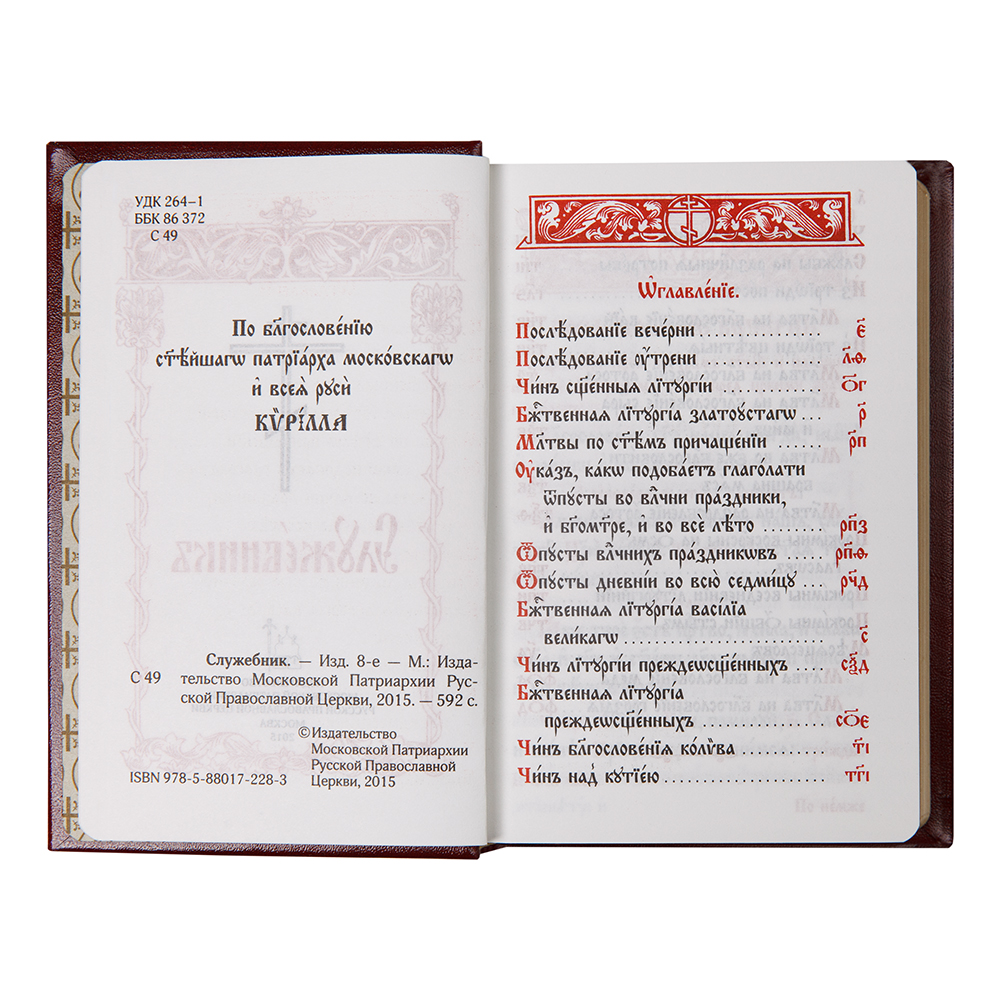 УДК 264–1
ББК 86 372
С 49
По бл҃гослове́нїю
ст҃ѣ́йшагѡ патрїа́рха моско́вскагѡ
и҆ всеѧ̀ рꙋсѝ
КѴРІ́ЛЛА
Служебник. — Изд. 8-е — М.: Изда-
С 49 тельство Московской Патриархии Рус-
ской Православной Церкви, 2015. — 592 с.
©Издательство
Московской Патриархии
Русской Православной
Церкви, 2015
ISBN 978-5-88017-228-3
Ѡ҆главле́нїе.
Послѣ́дованїе вече́рни ... є҃
Послѣ́дованїе ᲂу҆́трени ... л҃ѳ
Чи́нъ сщ҃е́нныѧ лїтꙋргі́и ... ѻ҃г
Бжⷭ҇твеннаѧ лїтꙋргі́а златоꙋ́стагѡ ... р҃
Мл҃твы по ст҃ѣ́мъ причаще́нїи ... р҃п
Оу҆ка́зъ, ка́кѡ подоба́етъ глаго́лати
ѿпꙋсты во влⷣчни пра́здники,
и҆ бг҃ома́тре, и҆ во всѐ лѣ́то ... рп҃з
Ѿпꙋсты влⷣчнихъ пра́здникѡвъ ... рп҃ѳ
Ѿпꙋсты дневні́и во всю̀ седми́цꙋ ... рч҃д
Бжⷭ҇твеннаѧ лїтꙋргі́а васі́лїа
вели́кагѡ ... с҃
Чи́нъ лїтꙋргі́и преждеѡсщ҃е́нныхъ ... сл҃д
Бжⷭ҇твеннаѧ лїтꙋргі́а
преждеѡсщ҃е́нныхъ ... со҃є
Чи́нъ бл҃гослове́нїѧ ко́лѷва ... т҃і
Чи́нъ над̾ кꙋтїе́ю ... тг҃і